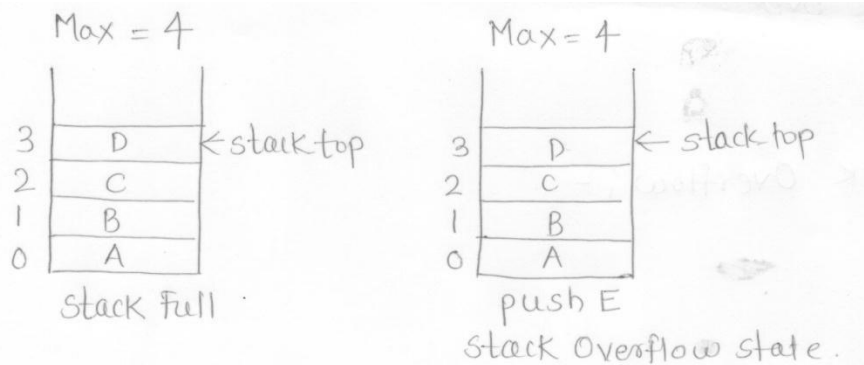 Max = 4
3 D ← stack top
2 C
1 B
0 A
stack Full
Max = 4
3 D ← stack top
2 C
1 B
0 A
push E
stack Overflow state.